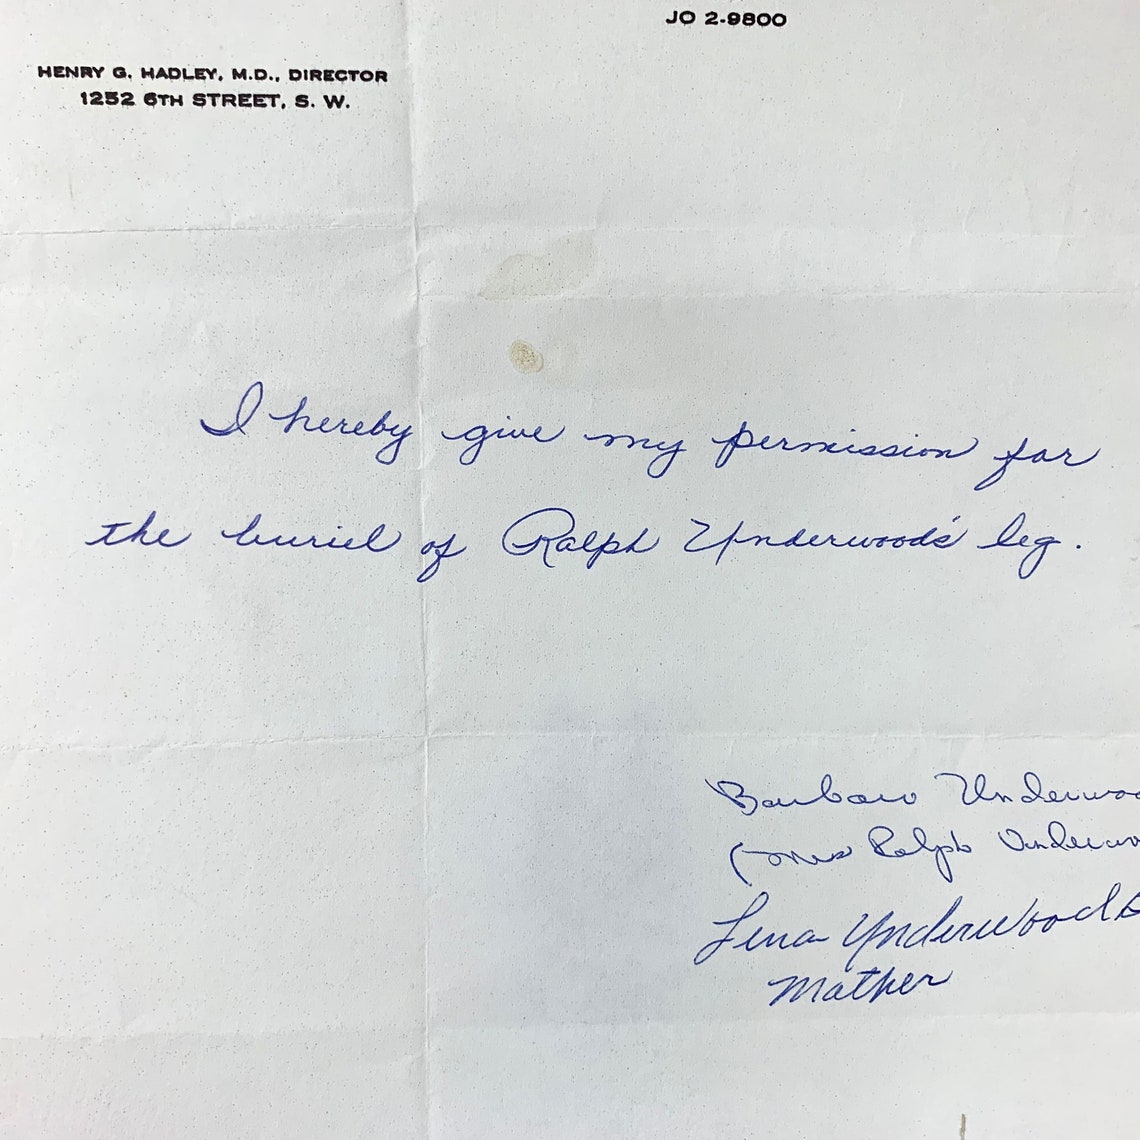 JO 2-9800
HENRY G. HADLEY, M.D., DIRECTOR
1252 6TH STREET, S. W.
I hereby give my permission for
the buriel of Ralph Underwood's leg.
Barbara Underwoo
(Mrs Ralph Underwo
Lena Underwood
Mother